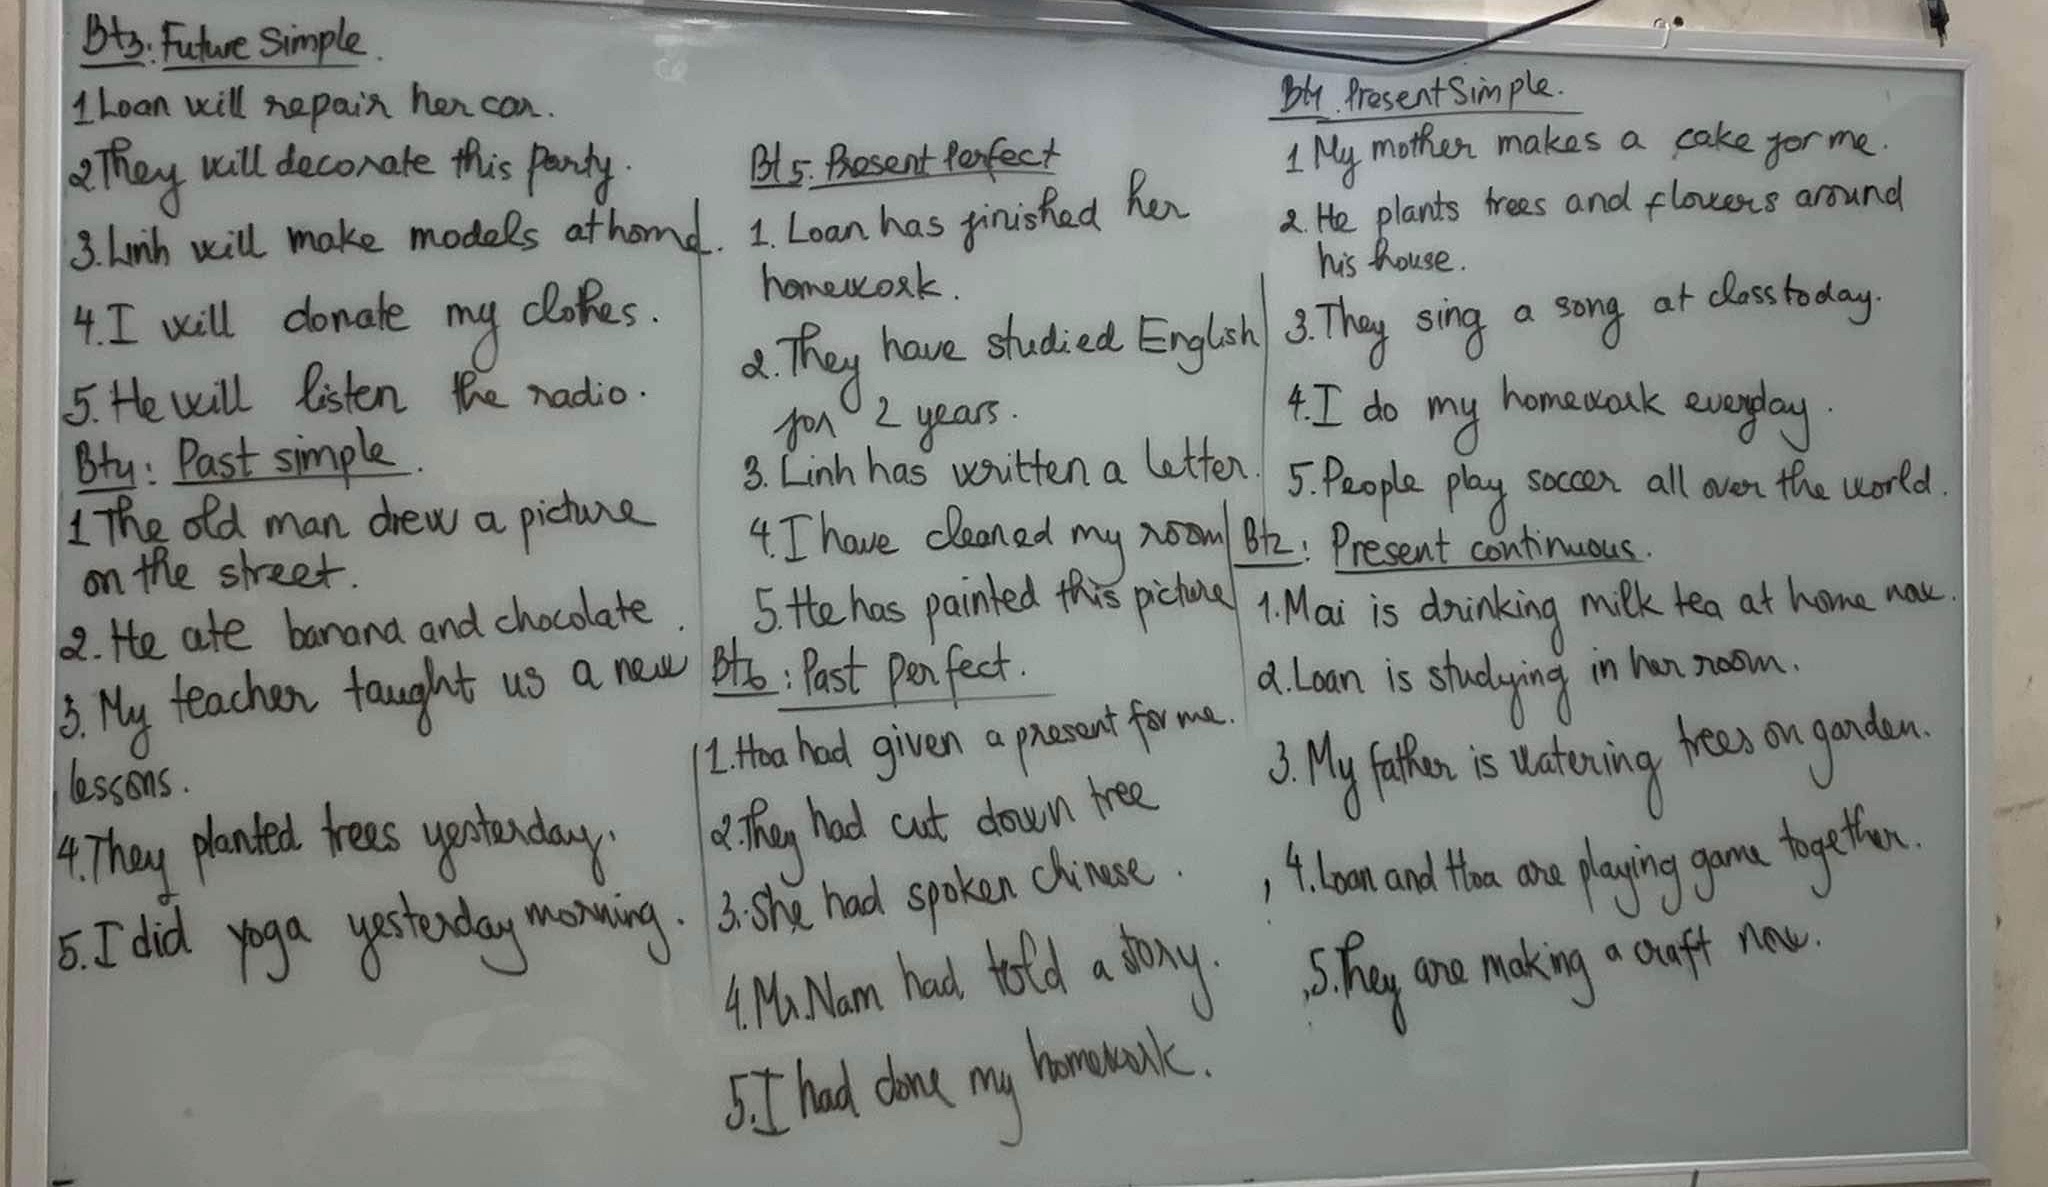 Bt3: Future Simple.
1 Loan will repair her car.
2 They will decorate this party.
3. Linh will make models at home.
4. I will donate my clothes.
5. He will listen the radio.
Bt4: Past simple.
1 The old man drew a picture
on the street.
2. He ate banana and chocolate.
3. My teacher taught us a new
lessons.
4. They planted trees yesterday.
5. I did yoga yesterday morning.
Bt5: Present Perfect
1. Loan has finished her
homework.
2. They have studied English
for 2 years.
3. Linh has written a letter.
4. I have cleaned my room
5. He has painted this picture
Bt6: Past perfect.
1. Hoa had given a present for me.
2. They had cut down tree
3. She had spoken chinese.
4. Mr. Nam had told a story.
5. I had done my homework.
Bt1. Present Simple.
1 My mother makes a cake for me.
2. He plants trees and flowers around
his house.
3. They sing a song at class today.
4. I do my homework everyday.
5. People play soccer all over the world.
Bt2: Present continuous.
1. Mai is drinking milk tea at home now.
2. Loan is studying in her room.
3. My father is watering trees on garden.
4. Loan and Hoa are playing game together.
5. They are making a craft now.